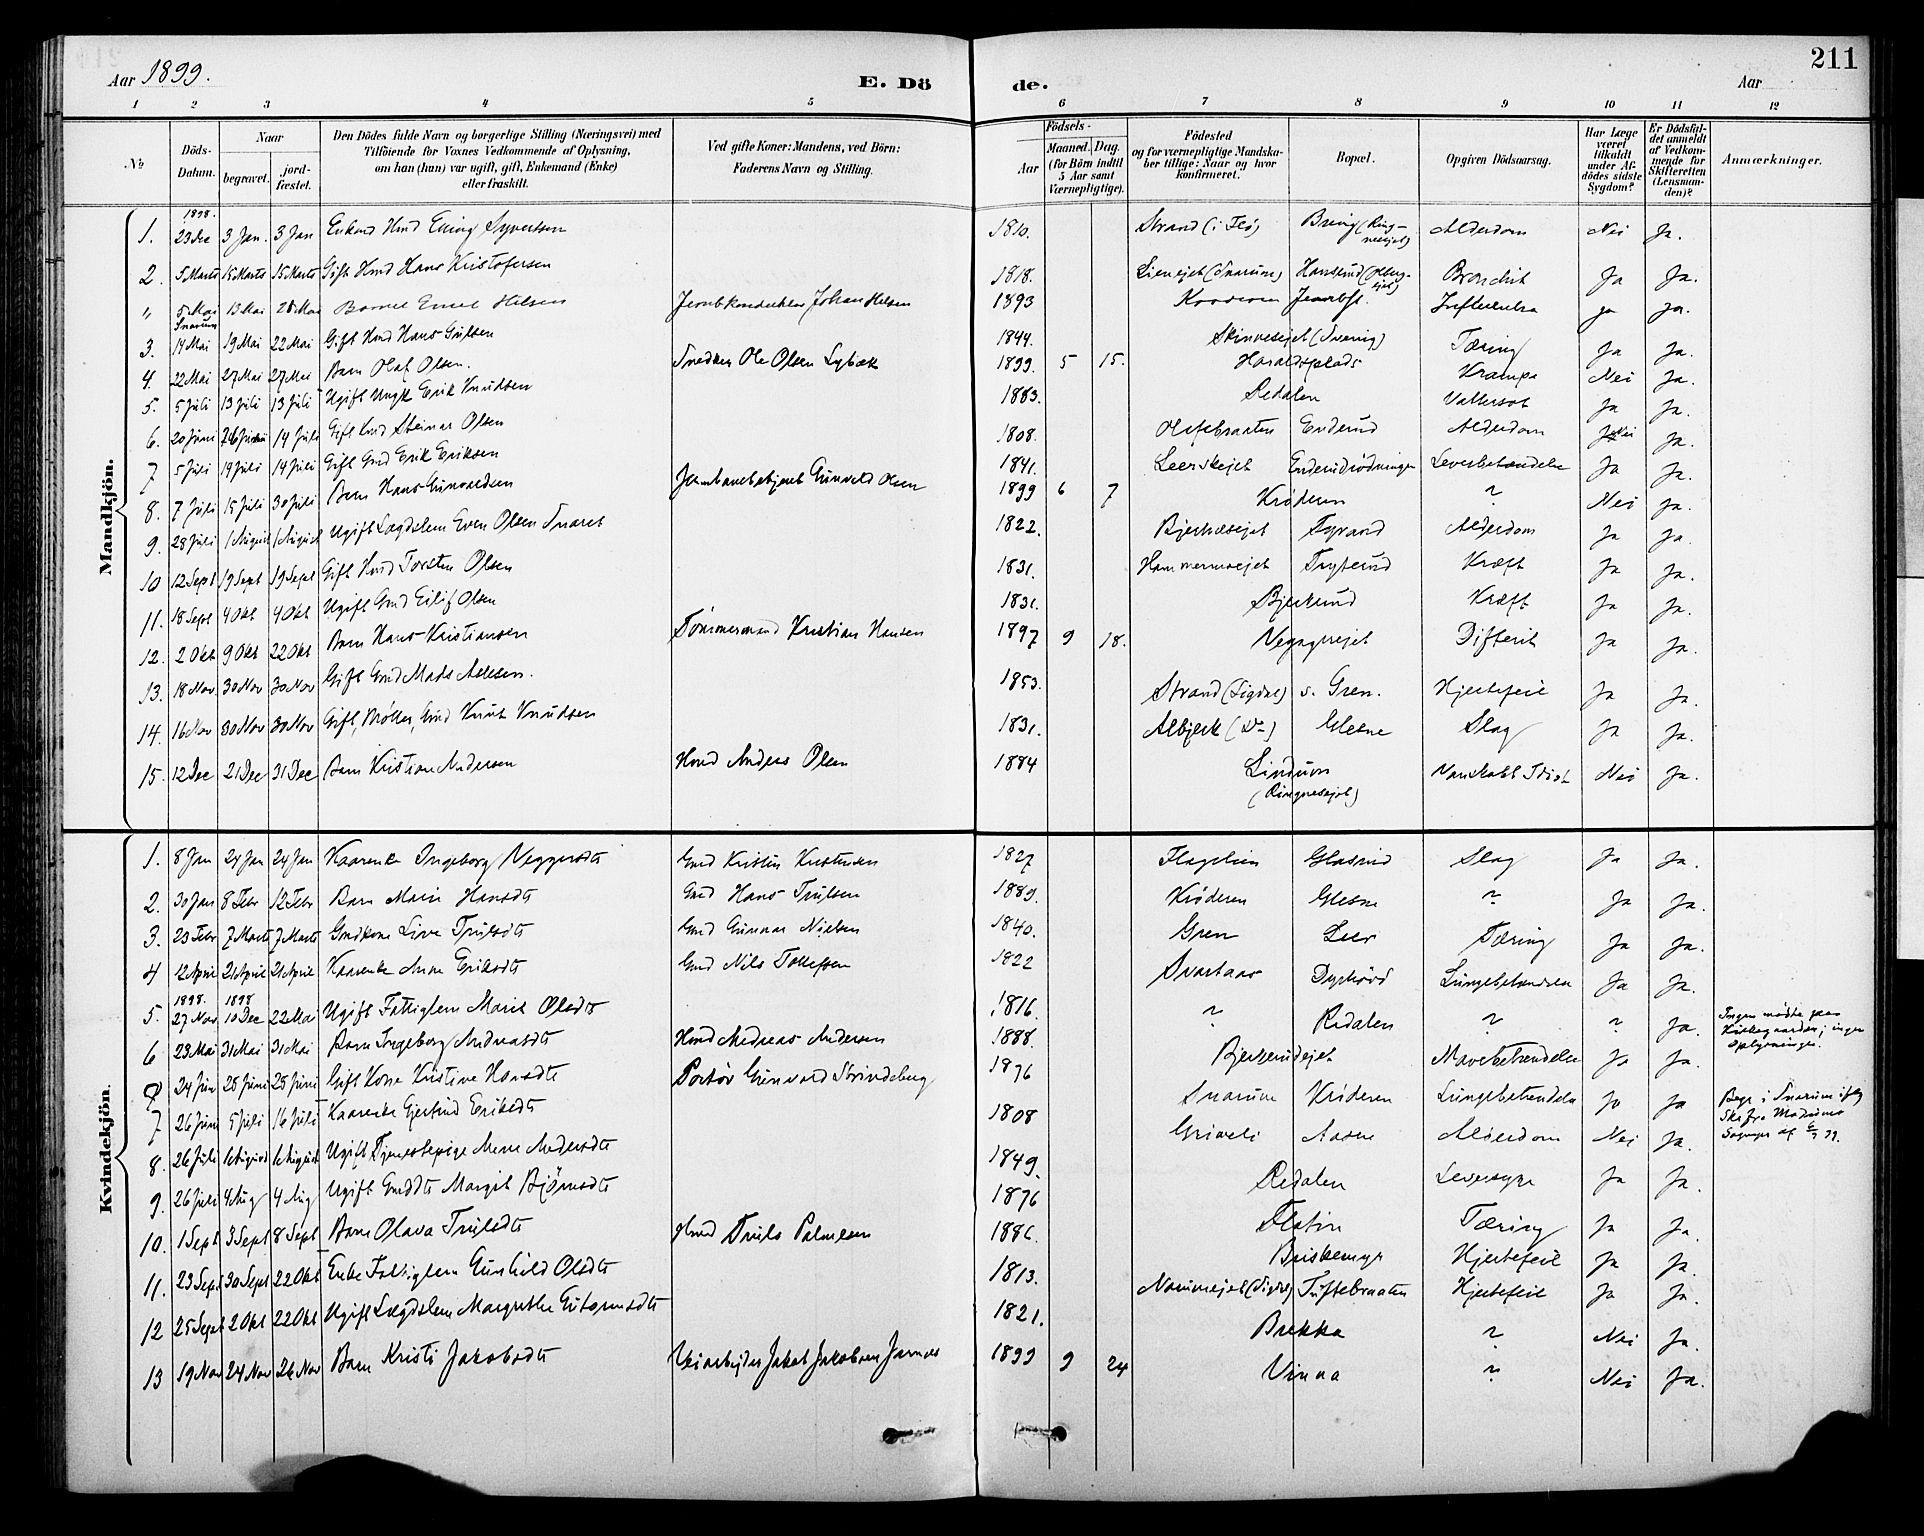 211
Aar 1899.
E. Dö
de.
Aar
1 2 3 4 5 6 7 8 9 10 11 12
№
Döds-Datum.
Naar
begravet.
jord-fæstet.
Den Dödes fulde Navn og borgerlige Stilling (Næringsvei) med
Tilföiende for Voxnes Vedkommende af Oplysning,
om han (hun) var ugift, gift, Enkemand (Enke)
eller fraskilt.
Ved gifte Koner: Mandens, ved Börn:
Faderens Navn og Stilling.
Födsels-
Aar
Maaned. Dag.
(for Börn indtil
5 Aar samt
Værnepligtige).
Födested
og for værnepligtige Mandska-
ber tillige: Naar og hvor
konfirmeret.
Bopæl.
Opgiven Dödsaarsag.
Har Læge
været
tilkaldt
under Af-
dödes sidste
Sygdom?
Er Dödsfal-
det anmeldt
af Vedkom-
mende for
Skifteretten
(Lensman-
den)?
Anmærkninger.
Mandkjön.
1. 1898. 23 Dec 3 Jan. 3 Jan Enkmd Hmd Elling Syvertsen 1810. Strand (i Flö) Bring (Ringneseiet) Alderdom Nei Ja.
2. 5 Marts 15 Marts 15 Marts Gift Hmd Hans Kristofersen 1818. Lieneiet (Snarum) Bronchit Ja Ja.
" 5 Mai Snarum 13 Mai 28 Mai Barnet Emil Hilsen Johan Hilsen 1893 Influenza ja ja.
3. 14 Mai 19 Mai 22 Mai Gift Hmd Hans Gulsen 1844. Tæring Ja Ja.
4. 22 Mai 27 Mai 27 Mai Barn Olaf Olsen. Snedker Ole Olsen Lybæk 1899. 5 15. Haraldsplads Krampe Nei Ja.
5. 5 Juli 13 Juli 13 Juli Ugift Ungk Erik Knudsen 1883. Redalen Vattersot Ja Ja.
6. 20 Juni 26 Juni 14 Juli Gift Hmd Steinar Olsen 1808. Olafsbraaten Enderud Alderdom Nei Ja.
7 5 Juli 14 Juli 14 Juli Gift Gmd Erik Eriksen 1841. Leerskeiet Enderudrödningen Leverbetændelse Ja Ja.
8. 7 Juli 15 Juli 30 Juli Barn Hans Gunvaldsen Jernbanebetjent Gunvald Olsen 1899 6 7 Kröderen ? Nei Ja.
9. 28 Juli 1 August 1 August Ugift Lægdslem Even Olsen Snaret 1822. Alderdom Ja Ja.
10 12 Sept 19 Sept 19 Sept Gift Hmd Torsten Olsen 1831. Hammerneiet Tryterud Kræft Ja Ja.
11. 18 Sept 4 Okt 4 Okt Ugift Gmd Eilif Olsen 1831. Bjerkerud Kræft Ja Ja.
12. 2 Okt 9 Okt 22 Okt Barn Hans Kristiansen Tömmermand Kristian Hansen 1897 9 18. Difterit Ja Ja.
13. 18 Nov 30 Nov 30 Nov Gift Gmd Mads Aslesen. 1853. Strand (Sigdal) s. Gren. Hjertefeil Ja Ja.
14. 16 Nov 30 Nov 30 Nov Gift, Möller, Gmd Knut Knudsen 1831. Albjerk (Do) Glesne Slag Ja Ja.
15. 12 Dec 21 Dec 31 Dec Barn Kristian Andersen Hmd Anders Olsen 1884 Lindum (Ringneseiet) Vanskabt Idiot Nei Ja.
Kvindekjön.
1. 8 Jan 24 Jan 24 Jan Kaarenke Ingeborg Gmd Kristen Kristensen 1827 Glasrud Slag Ja Ja.
2. 30 Jan 8 Febr 12 Febr Barn Marie Hansdt Gmd Hans Trulsen 1889. Kröderen Glesne ? Ja Ja.
3. 23 Febr 7 Marts 7 Marts Gmdkone Live Trulsdt Gmd Gunnar Nielsen 1840. Gren Leer Tæring Ja Ja.
4 12 April 21 April 21 April Kaarenke Anne Eriksdt Gmd Nils Tollefsen 1822 Svartaas Lungebetændelse Ja Ja.
5. 1898. 27 Nov 1898 10 Dec 22 Mai Ugift Fattiglem Marit Olsdt 1816. ? Redalen ? ? Ja. Ingen mödte paa Kirkegaarden; ingen Oplysninger.
6 23 Mai 31 Mai 31 Mai Barn Ingeborg Andreasdt Hmd Andreas Andersen 1888. Bjerkerudeiet Mavebetændelse Ja Ja.
24 Jun 28 Juni 28 Juni Gift Kone Kristine Hansdt Portör Gunvald Strindeberg 1876 Snarum Kröderen Lungebetændelse Ja Ja Begr i Snarum
7 26 Juni 5 Juli 16 Juli Kaarenke Gjertrud Eriksdt 1808 Griveli Aasen Alderdom Nei Ja.
8. 26 Juli 1 August 1 August Ugift Tjenestepige Anne Andersdt 1849. Redalen Leversyge Ja Ja.
9. 26 Juli 4 Aug 4 Aug Ugift Gmddt Margit Björnsdt 1876 Flatin Tæring Ja Ja.
10. 1 Sept 3 Sept 8 Sept Barn Olava Trulsdt Hmd Truls Palmesen 1886. Briskemyr Hjertefeil Ja Ja.
11. 23 Sept 30 Sept 22 Okt Enke Fattiglem Gunhild Olsdt 1813. Tuftebraaten Hjertefeil Ja Ja.
12 25 Sept 2 Okt 22 Okt Ugift Lægdslem Margrethe Guttormsdt 1821. Brekka ? Nei Ja.
13 19 Nov 24 Nov 26 Nov Barn Kristi Jakobsdt Veiarbeider Jakob Jakobsen 1899 9 24 Vinna ? Nei Ja.